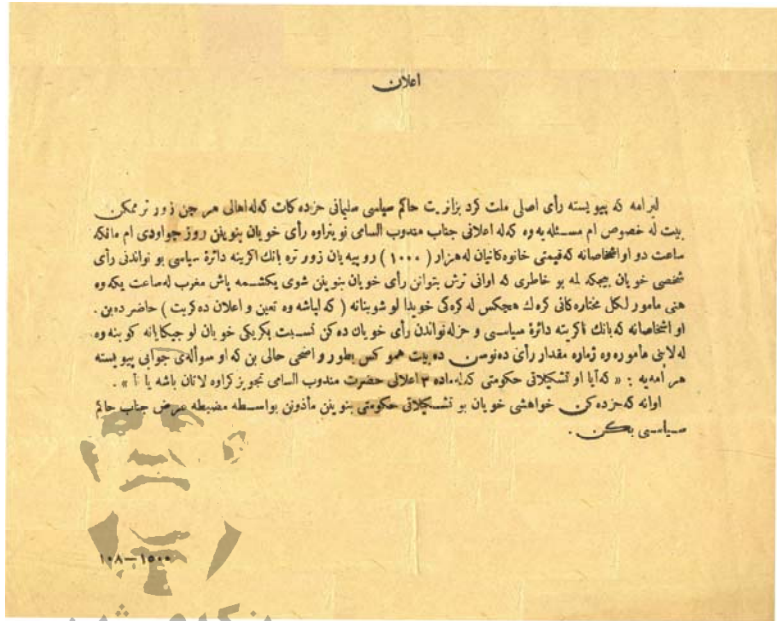 اعلان
لبرامه که پیویسته رأی اصلی ملت کرد بزانریت حاکم سیاسی سلیمانی حزده کات که له اهالی هر چن زور تر ممکن
بیت له خصوص ام مسئله یه وه که له اعلانی جناب مندوب السامی نوینراوه رأی خویان بنوینن روژ چواردی ام مانگه
ساعت دو اواشخاصانه که قیمتی خانوه کانیان له هزار ( ١٠٠٠ ) روپیه یان زور تره بانك اکرینه دائرة سیاسی بو نواندنی رأی
شخصی خویان بیجگه لمه بو خاطری که اوانی ترش بتوانن رأی خویان بنوینن شوی یکشمه پاش مغرب له ساعت یکه وه
هنی مامور لگل مختاره کانی گرەك هیچکس له گرەکی خویدا لو شوینانه ( که لپاشه وه تعین و اعلان ده کریت ) حاضر ده بن .
او اشخاصانه که بانك ناکرینه دائرة سیاسی و حزله نواندن رأی خویان ده کن تسبت یکریکی خویان لو جیگایانه کو بنه وه
له لاینی مأموره وه ژماره مقدار رأی ده نوسن ده بیت همو کس بطور واضحی حالی بن که او سؤاله ی جوابی پیویسته
هر أمه یه : « که آیا او تشکیلاتی حکومتی که له ماده ٣ اعلانی حضرت مندوب السامی تجویز کراوه لاتان باشه یا نا » .
اوانه که حزده کن خواهشی خویان بو تشکیلاتی حکومتی بنوینن مأذونن بواسطه مضبطه عرض جناب حاکم
سیاسی بکن .
١٥٠٠—١٠٨